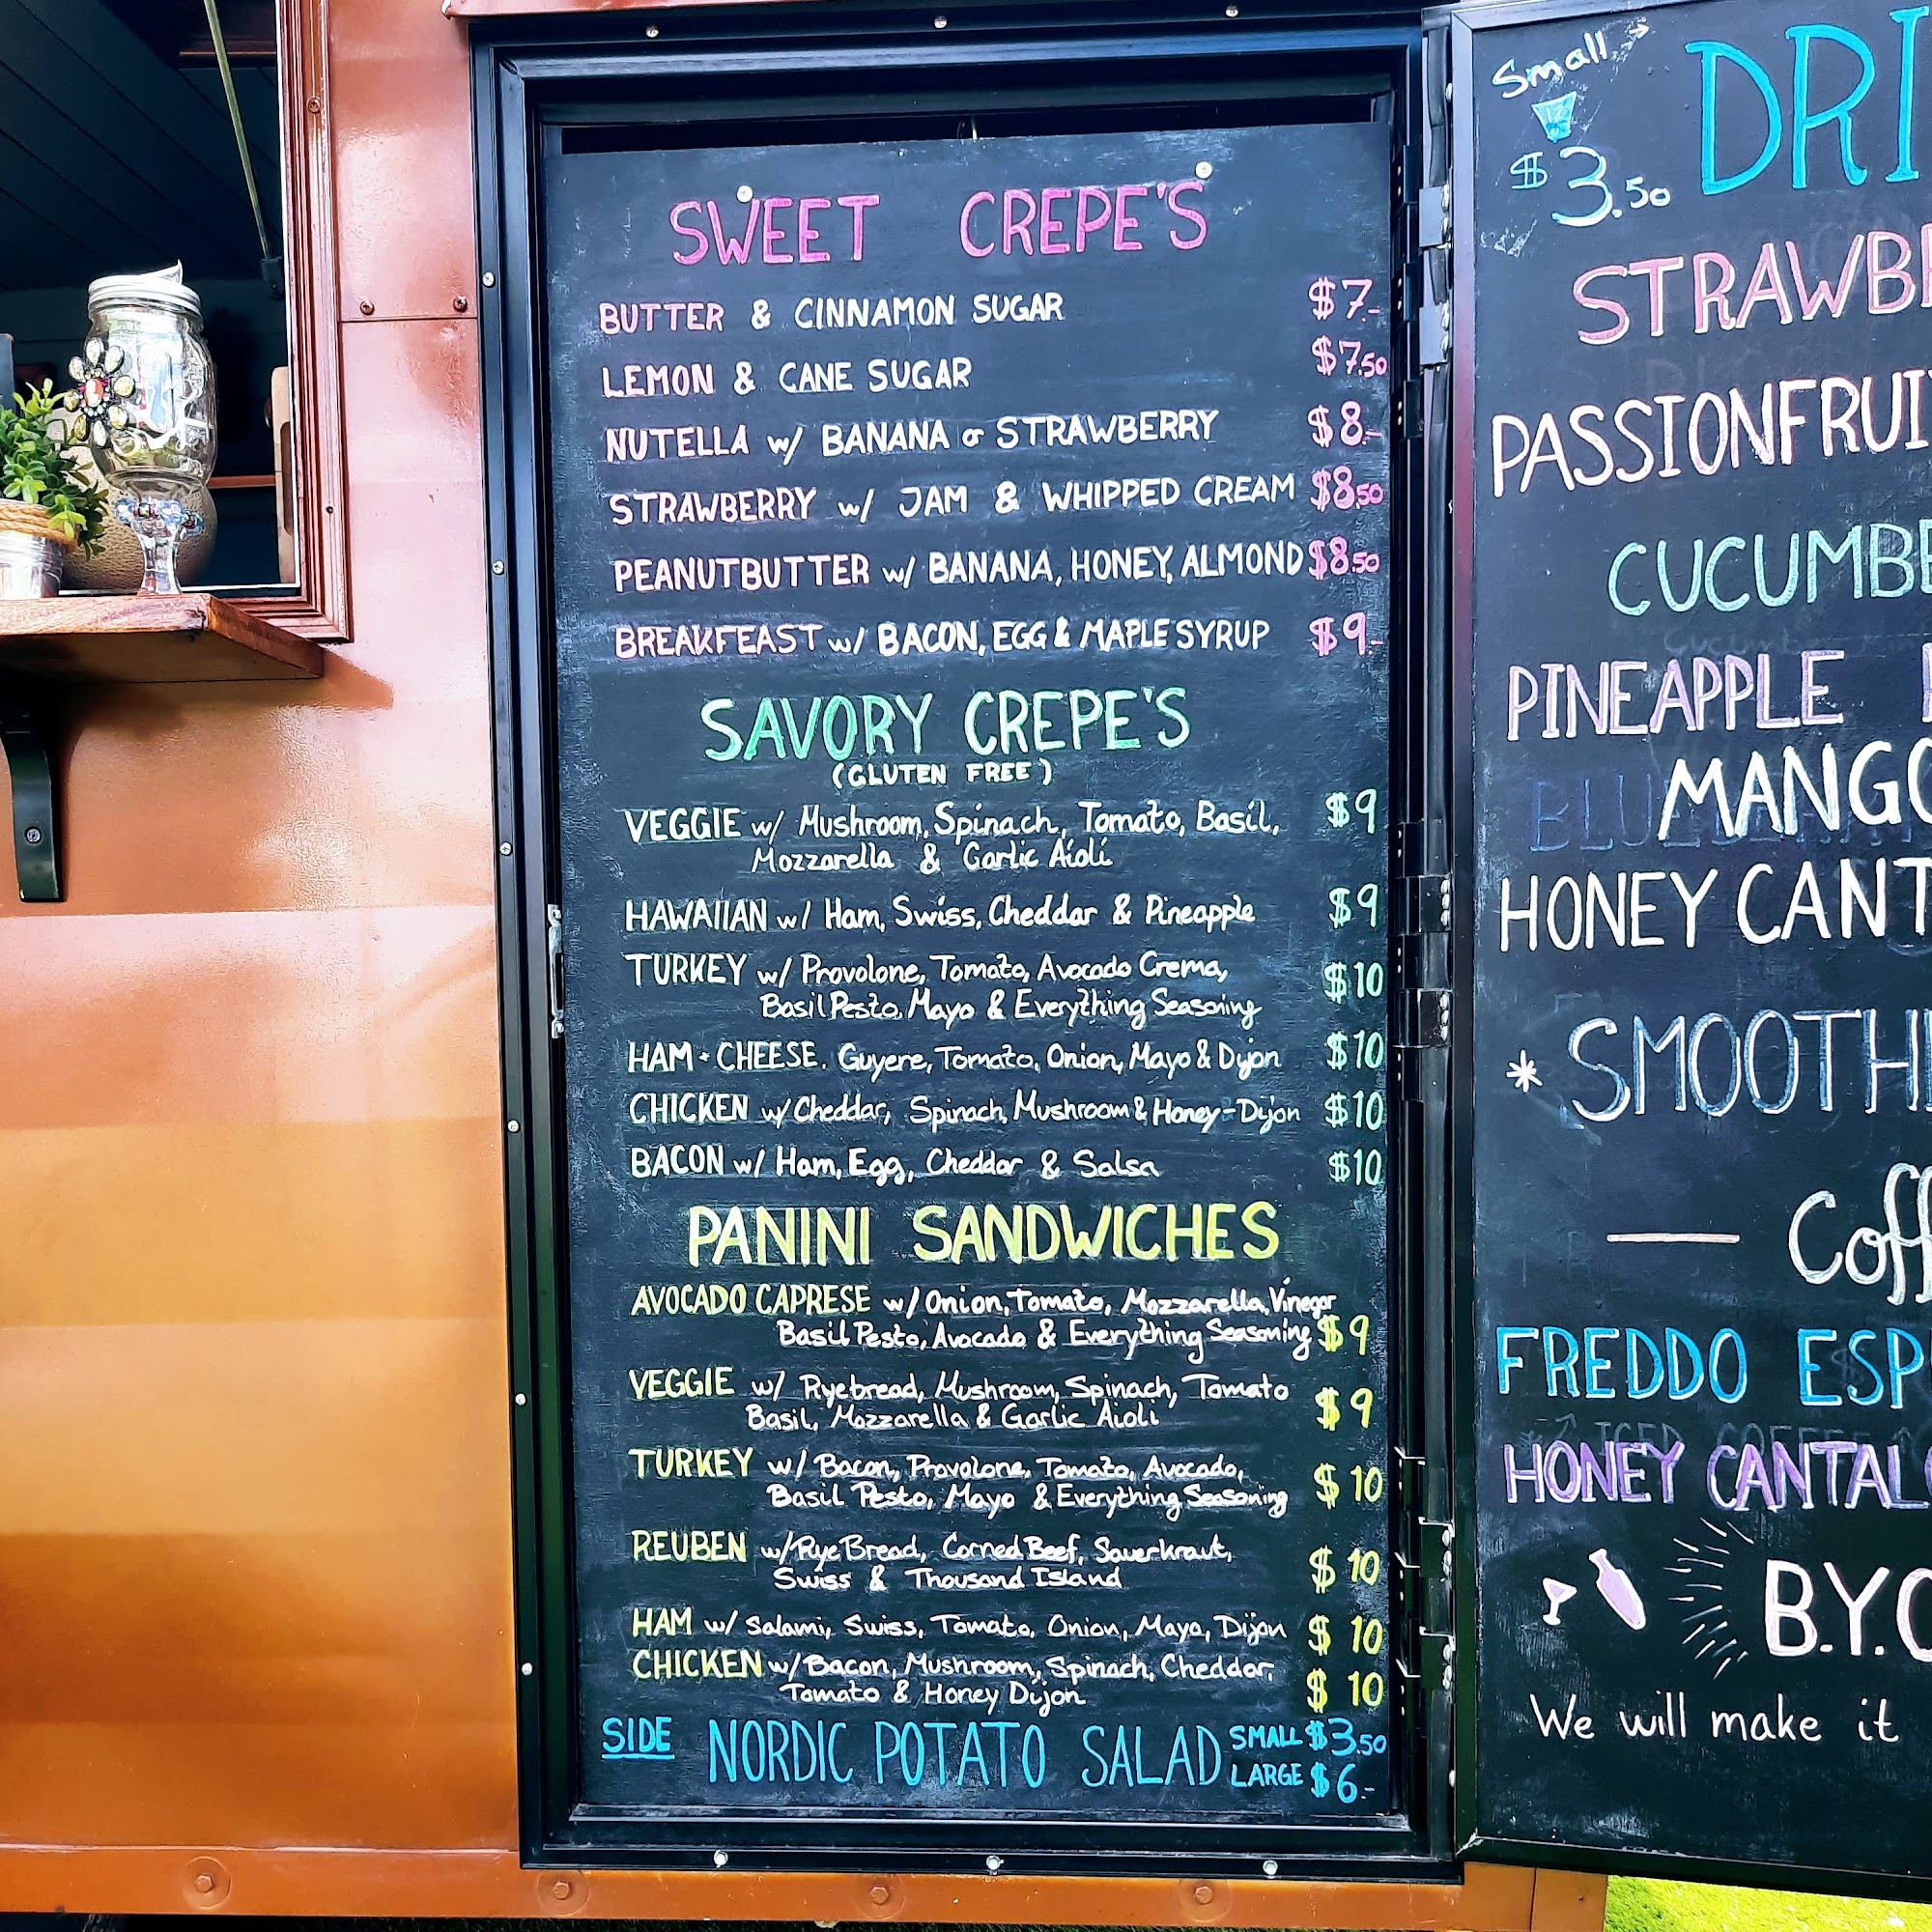 SWEET CREPE'S
BUTTER & CINNAMON SUGAR $7.-
LEMON & CANE SUGAR $7.50
NUTELLA w/ BANANA or STRAWBERRY $8.-
STRAWBERRY w/ JAM & WHIPPED CREAM $8.50
PEANUTBUTTER w/ BANANA, HONEY, ALMOND $8.50
BREAKFEAST w/ BACON, EGG & MAPLE SYRUP $9.-
SAVORY CREPE'S
(GLUTEN FREE)
VEGGIE w/ Mushroom, Spinach, Tomato, Basil, $9
Mozzarella & Garlic Aioli
HAWAIIAN w/ Ham, Swiss, Cheddar & Pineapple $9
TURKEY w/ Provolone, Tomato, Avocado Crema, $10
Basil Pesto, Mayo & Everything Seasoing
HAM + CHEESE. Guyere, Tomato, Onion, Mayo & Dijon $10
CHICKEN w/ Cheddar, Spinach, Mushroom & Honey-Dijon $10
BACON w/ Ham, Egg, Cheddar & Salsa $10
PANINI SANDWICHES
AVOCADO CAPRESE w/ Onion, Tomato, Mozzarella, Vinegar
Basil Pesto, Avocado & Everything Seasoning $9
VEGGIE w/ Ryebread, Mushroom, Spinach, Tomato $9
Basil, Mozzarella & Garlic Aioli
TURKEY w/ Bacon, Provolone, Tomato, Avocado, $10
Basil Pesto, Mayo & Everything Seasoning
REUBEN w/ Rye Bread, Corned Beef, Sauerkraut, $10
Swiss & Thousand Island
HAM w/ Salami, Swiss, Tomato, Onion, Mayo, Dijon $10
CHICKEN w/ Bacon, Mushroom, Spinach, Cheddar, $10
Tomato & Honey Dijon
SIDE NORDIC POTATO SALAD SMALL $3.50
LARGE $6.-
Small
$3.50
DRI
STRAWBE
PASSIONFRUI
CUCUMBE
PINEAPPLE
MANGO
HONEY CANT
* SMOOTHI
Coff
FREDDO ESP
HONEY CANTAL
B.Y.O
We will make it